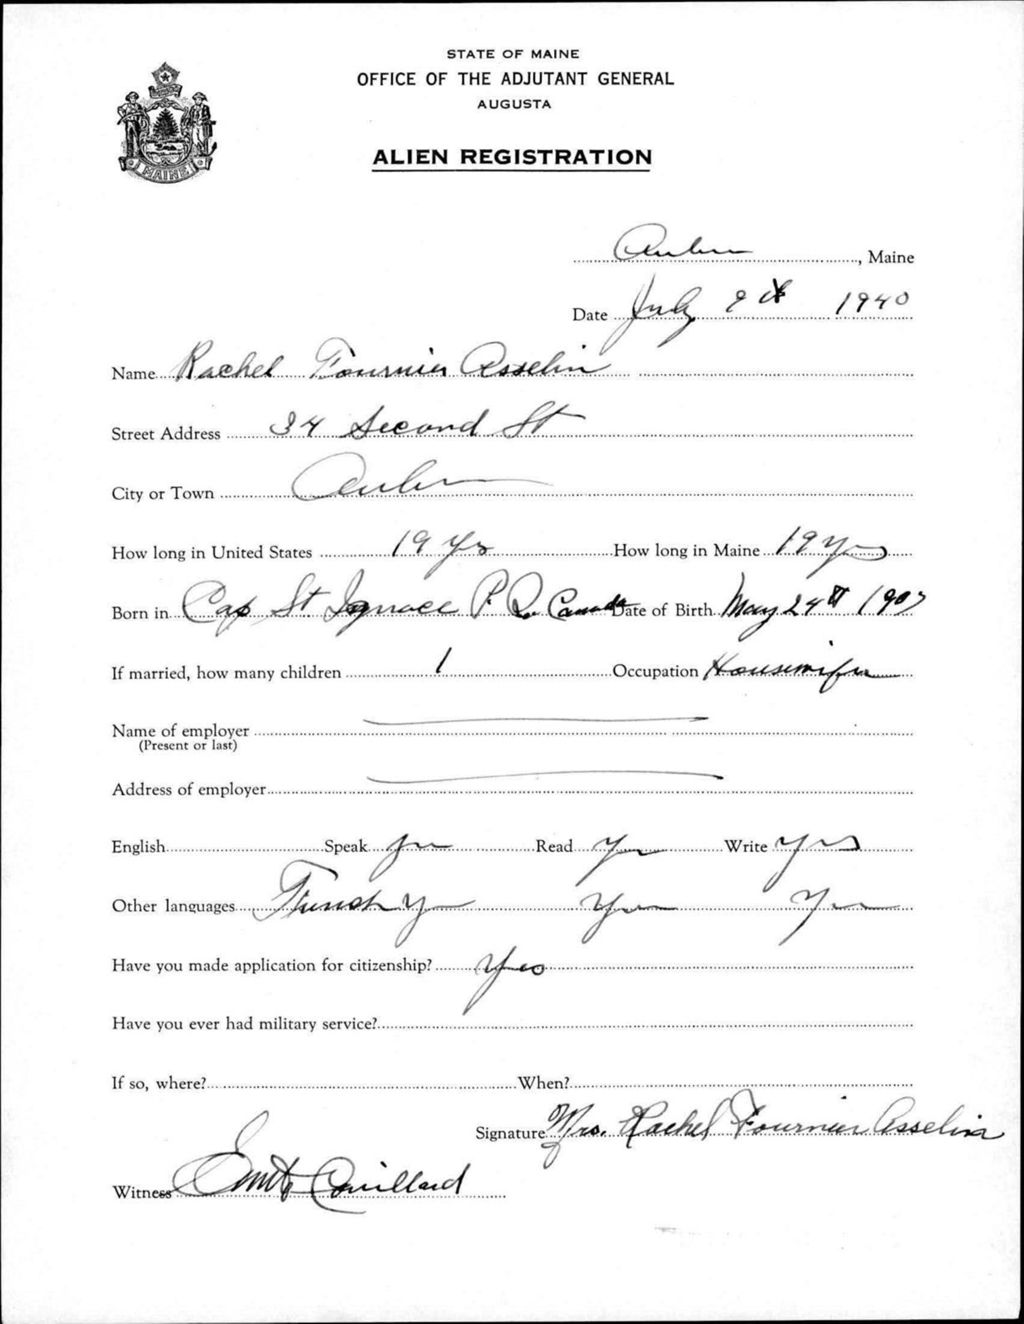 STATE OF MAINE
OFFICE OF THE ADJUTANT GENERAL
AUGUSTA
MAINE
ALIEN REGISTRATION
Auburn, Maine
Date July 9th 1940
Name Rachel Fournier Asselin
Street Address 34 Second St
City or Town Auburn
How long in United States 19 Yrs How long in Maine 19 Yrs
Born in Cap St Ignace P. Q. Canada Date of Birth May 24th 1907
If married, how many children 1 Occupation Housewife
Name of employer
(Present or last)
Address of employer
English Speak Yes Read Yes Write Yes
Other languages French Yes Yes Yes
Have you made application for citizenship? Yes
Have you ever had military service?
If so, where? When?
Signature Mrs. Rachel Fournier Asselin
Witness Couillard